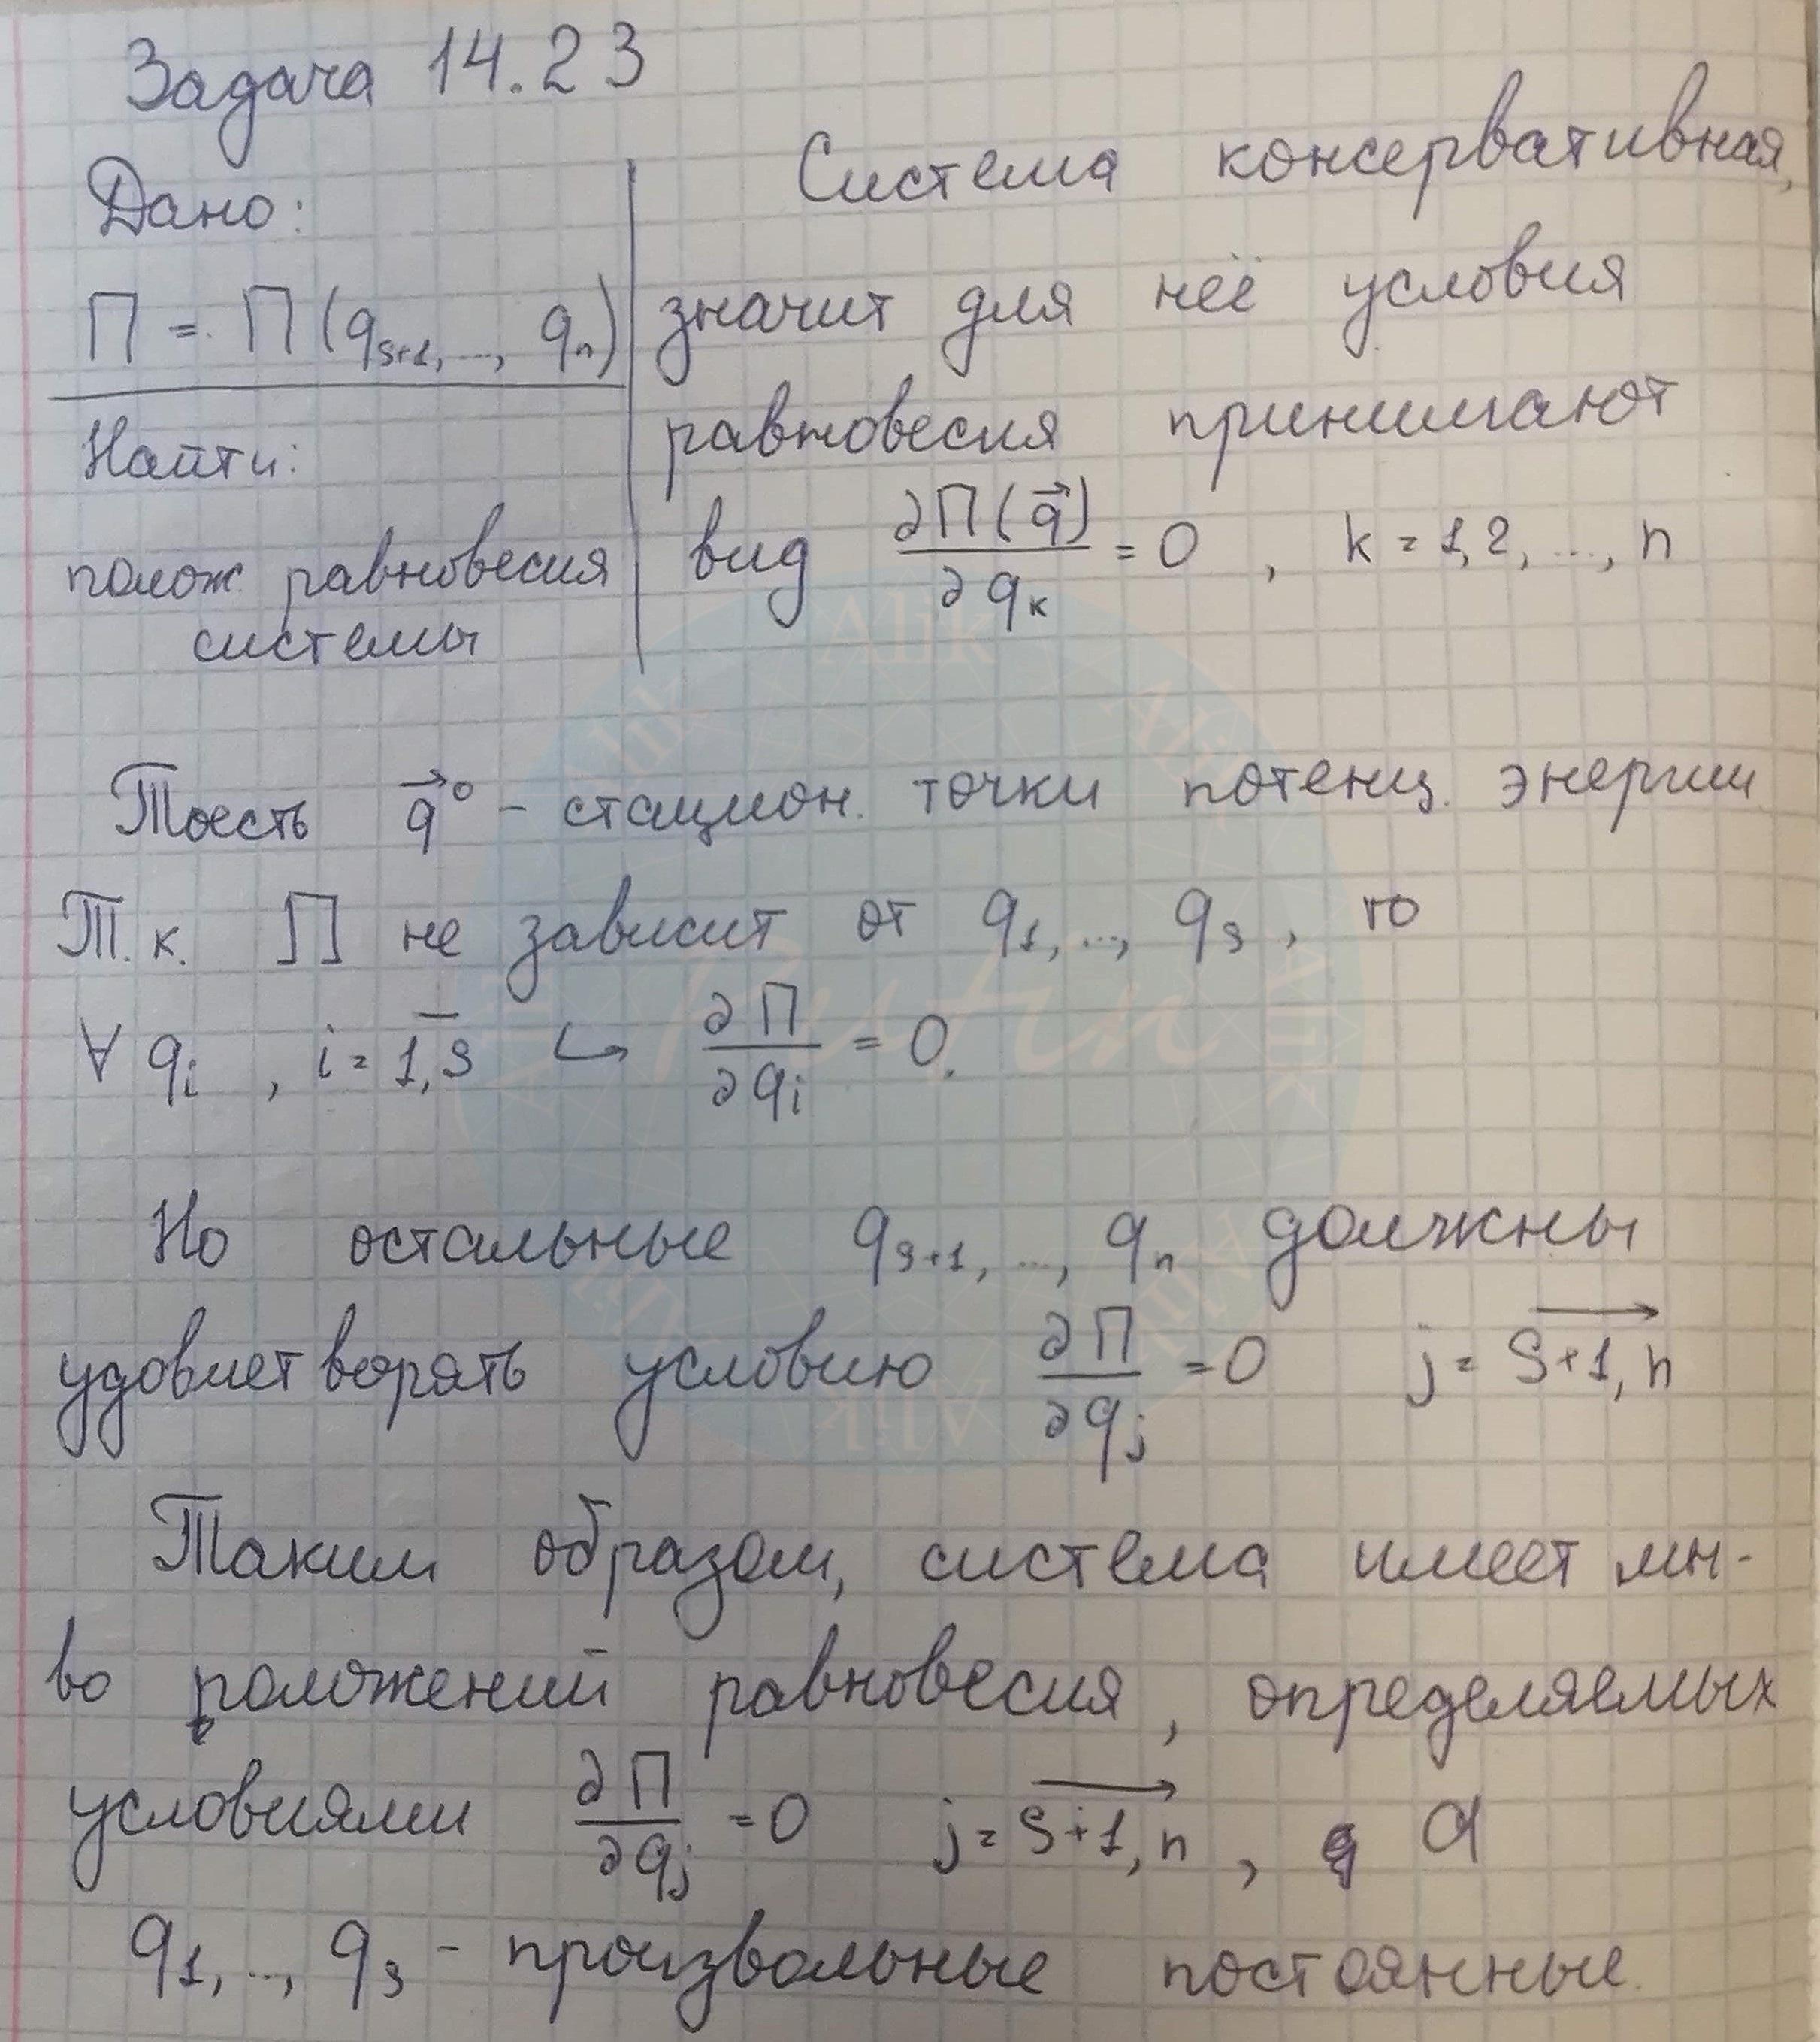 Задача 14.23
Дано:
П = П(q_{s+1}, ..., q_n)
Найти:
полож. равновесия
системы
Система консервативная,
значит для неё условия
равновесия принимают
вид ∂П(q⃗)/∂q_k = 0 , k = 1,2, ..., n
Тоесть q⃗° – стацион. точки потенц. энергии
Т.к. П не зависит от q_1, ..., q_s , то
∀ q_i , i = 1,s ↪ ∂П/∂q_i = 0.
Но остальные q_{s+1}, ..., q_n должны
удовлетворять условию ∂П/∂q_j = 0 j = s+1, n
Таким образом, система имеет мн-
во положений равновесия, определяемых
условиями ∂П/∂q_j = 0 j = s+1, n , а
q_1, ..., q_s – произвольные постоянные.
Alik
Alik
Alik
Alik
Alik
Alik
Alik
Putin